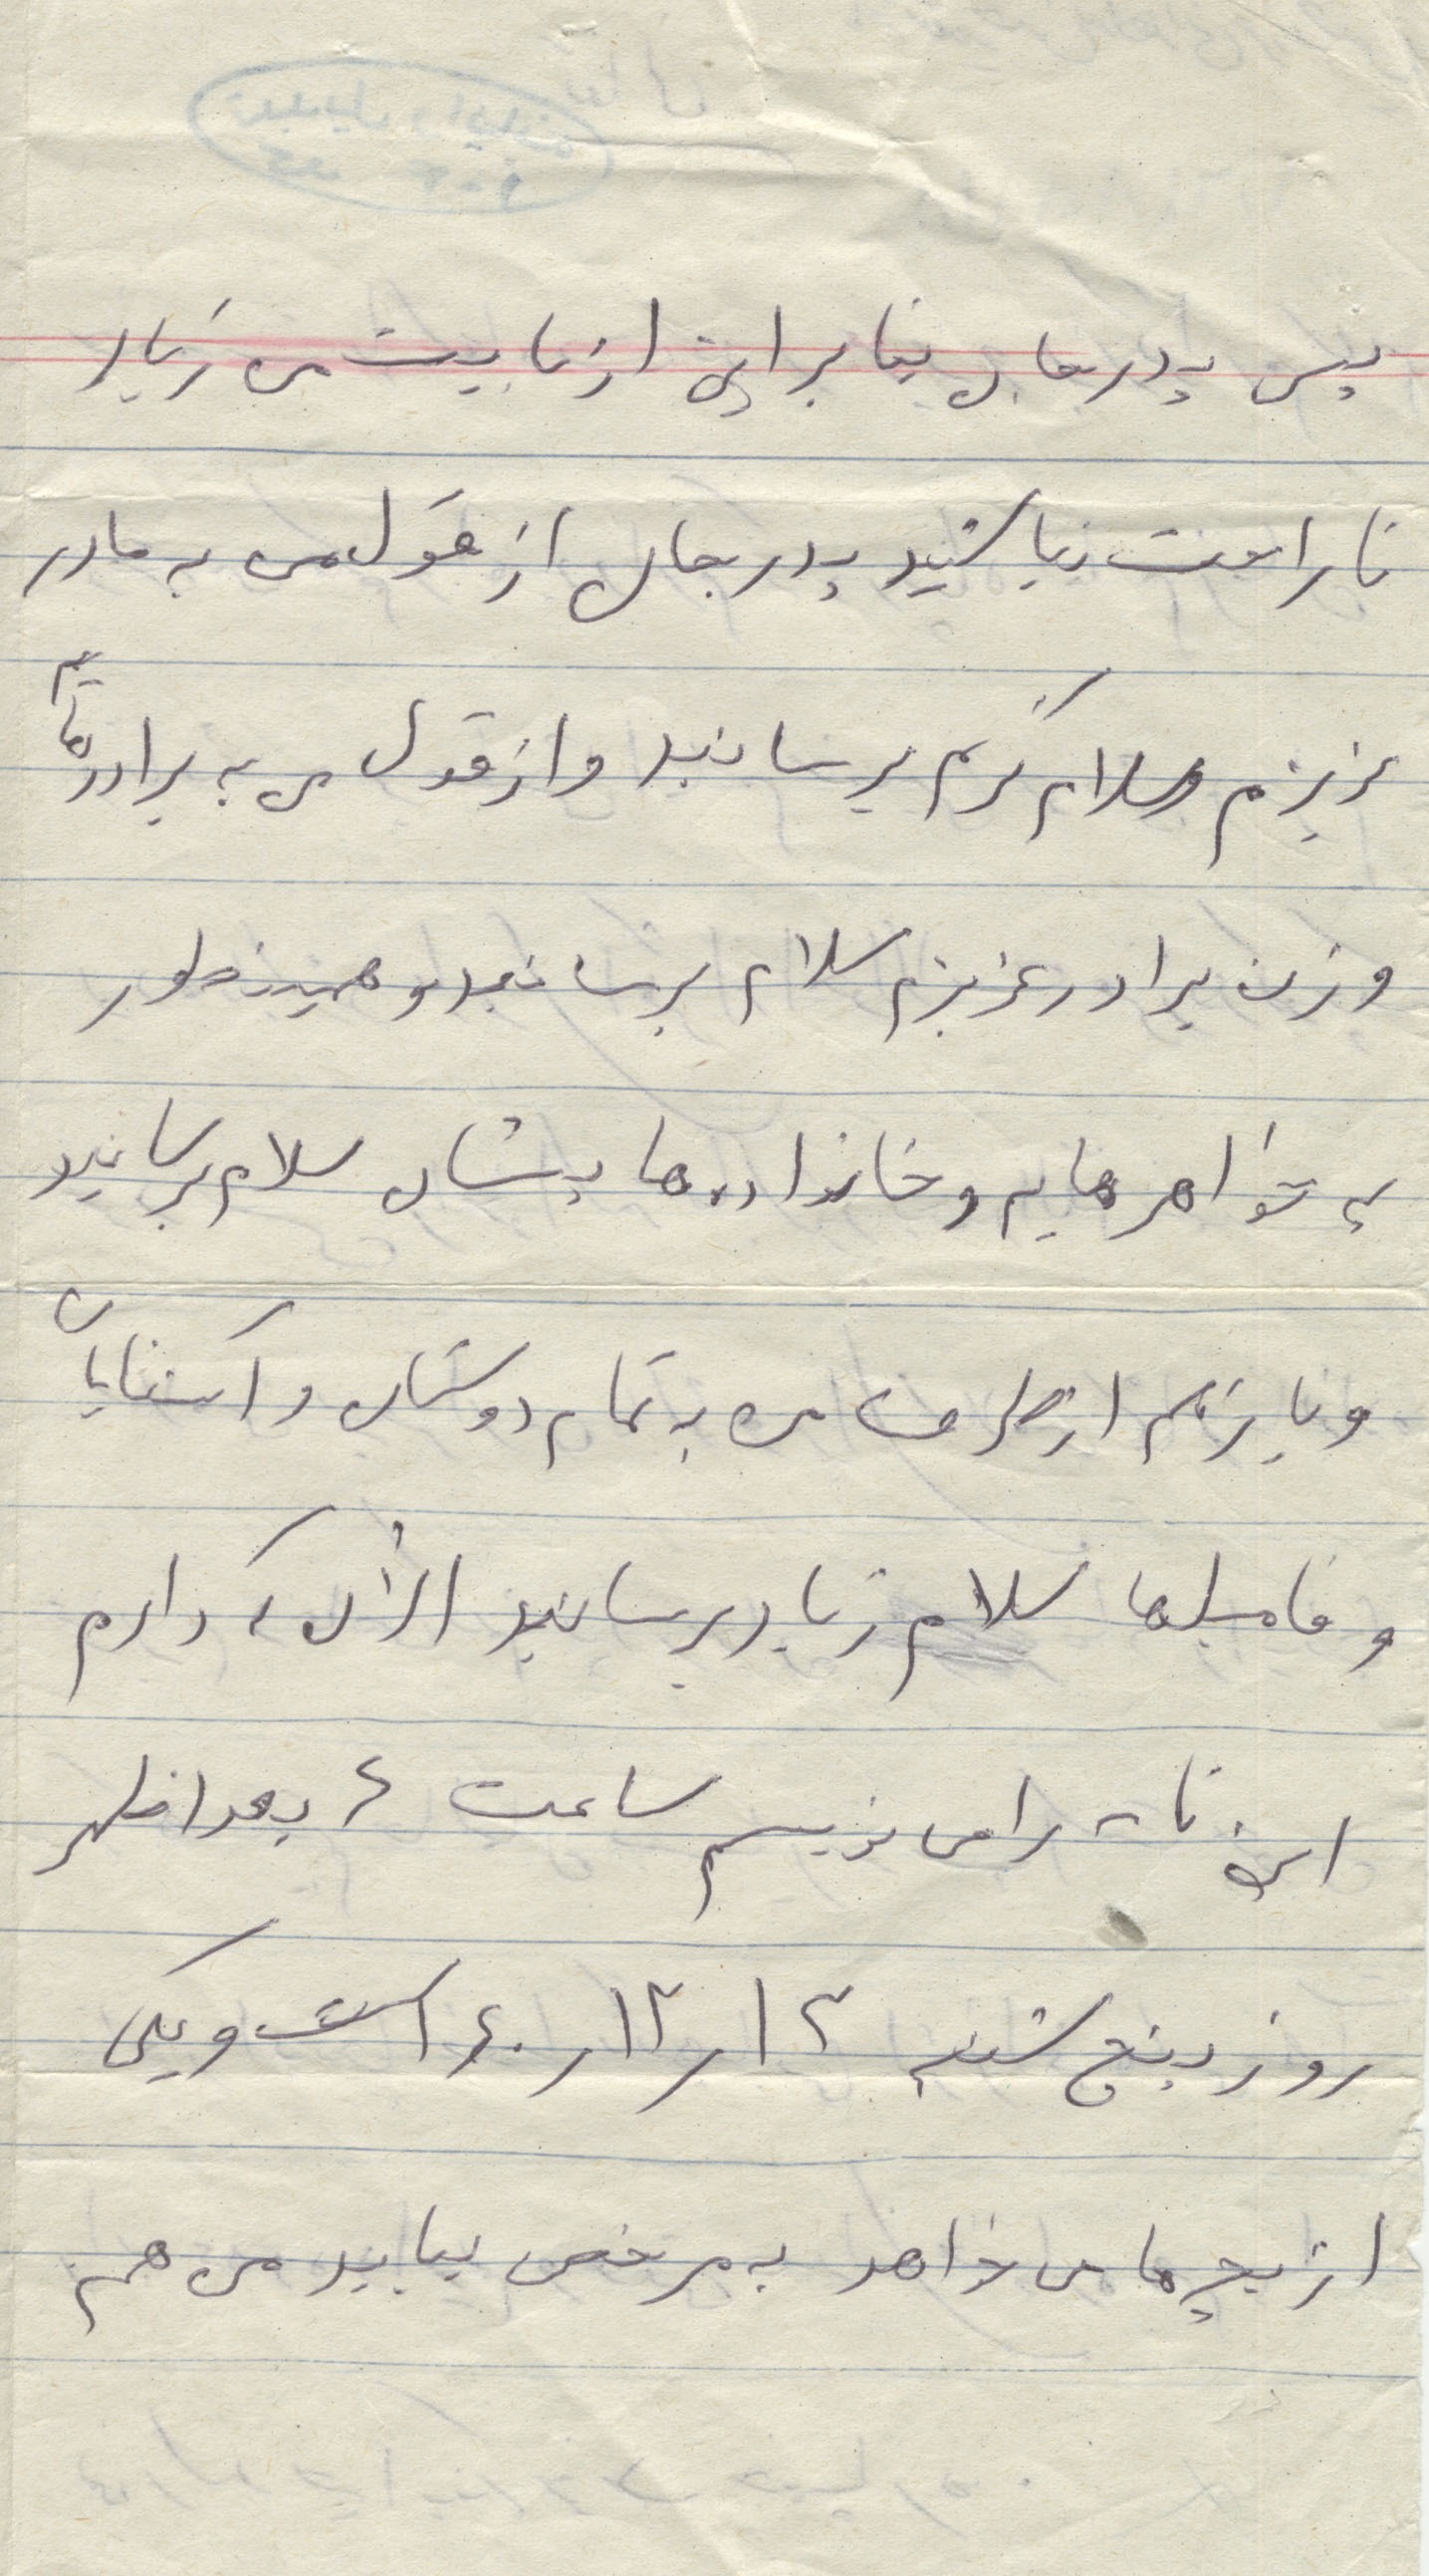 پس پدر جان بنابراین از بابت من زیاد
ناراحت نباشید پدر جان از قول من به مادر
عزیزم سلام گرم برسانید و از قول من به برادرهایم
و زن برادر عزیزم سلام برسانید و همینطور
به خواهرهایم و خانواده‌هایشان سلام برسانید
و باز هم از طرف من به تمام دوستان و آشنایان
و فامیلها سلام زیاد برسانید الان که دارم
این نامه را می نویسم ساعت ۴ بعد از ظهر
روز پنج شنبه ۱۳ / ۱۲ / ۶۰ است و یکی
از بچه‌ها می خواهد به مرخصی بیاید من هم